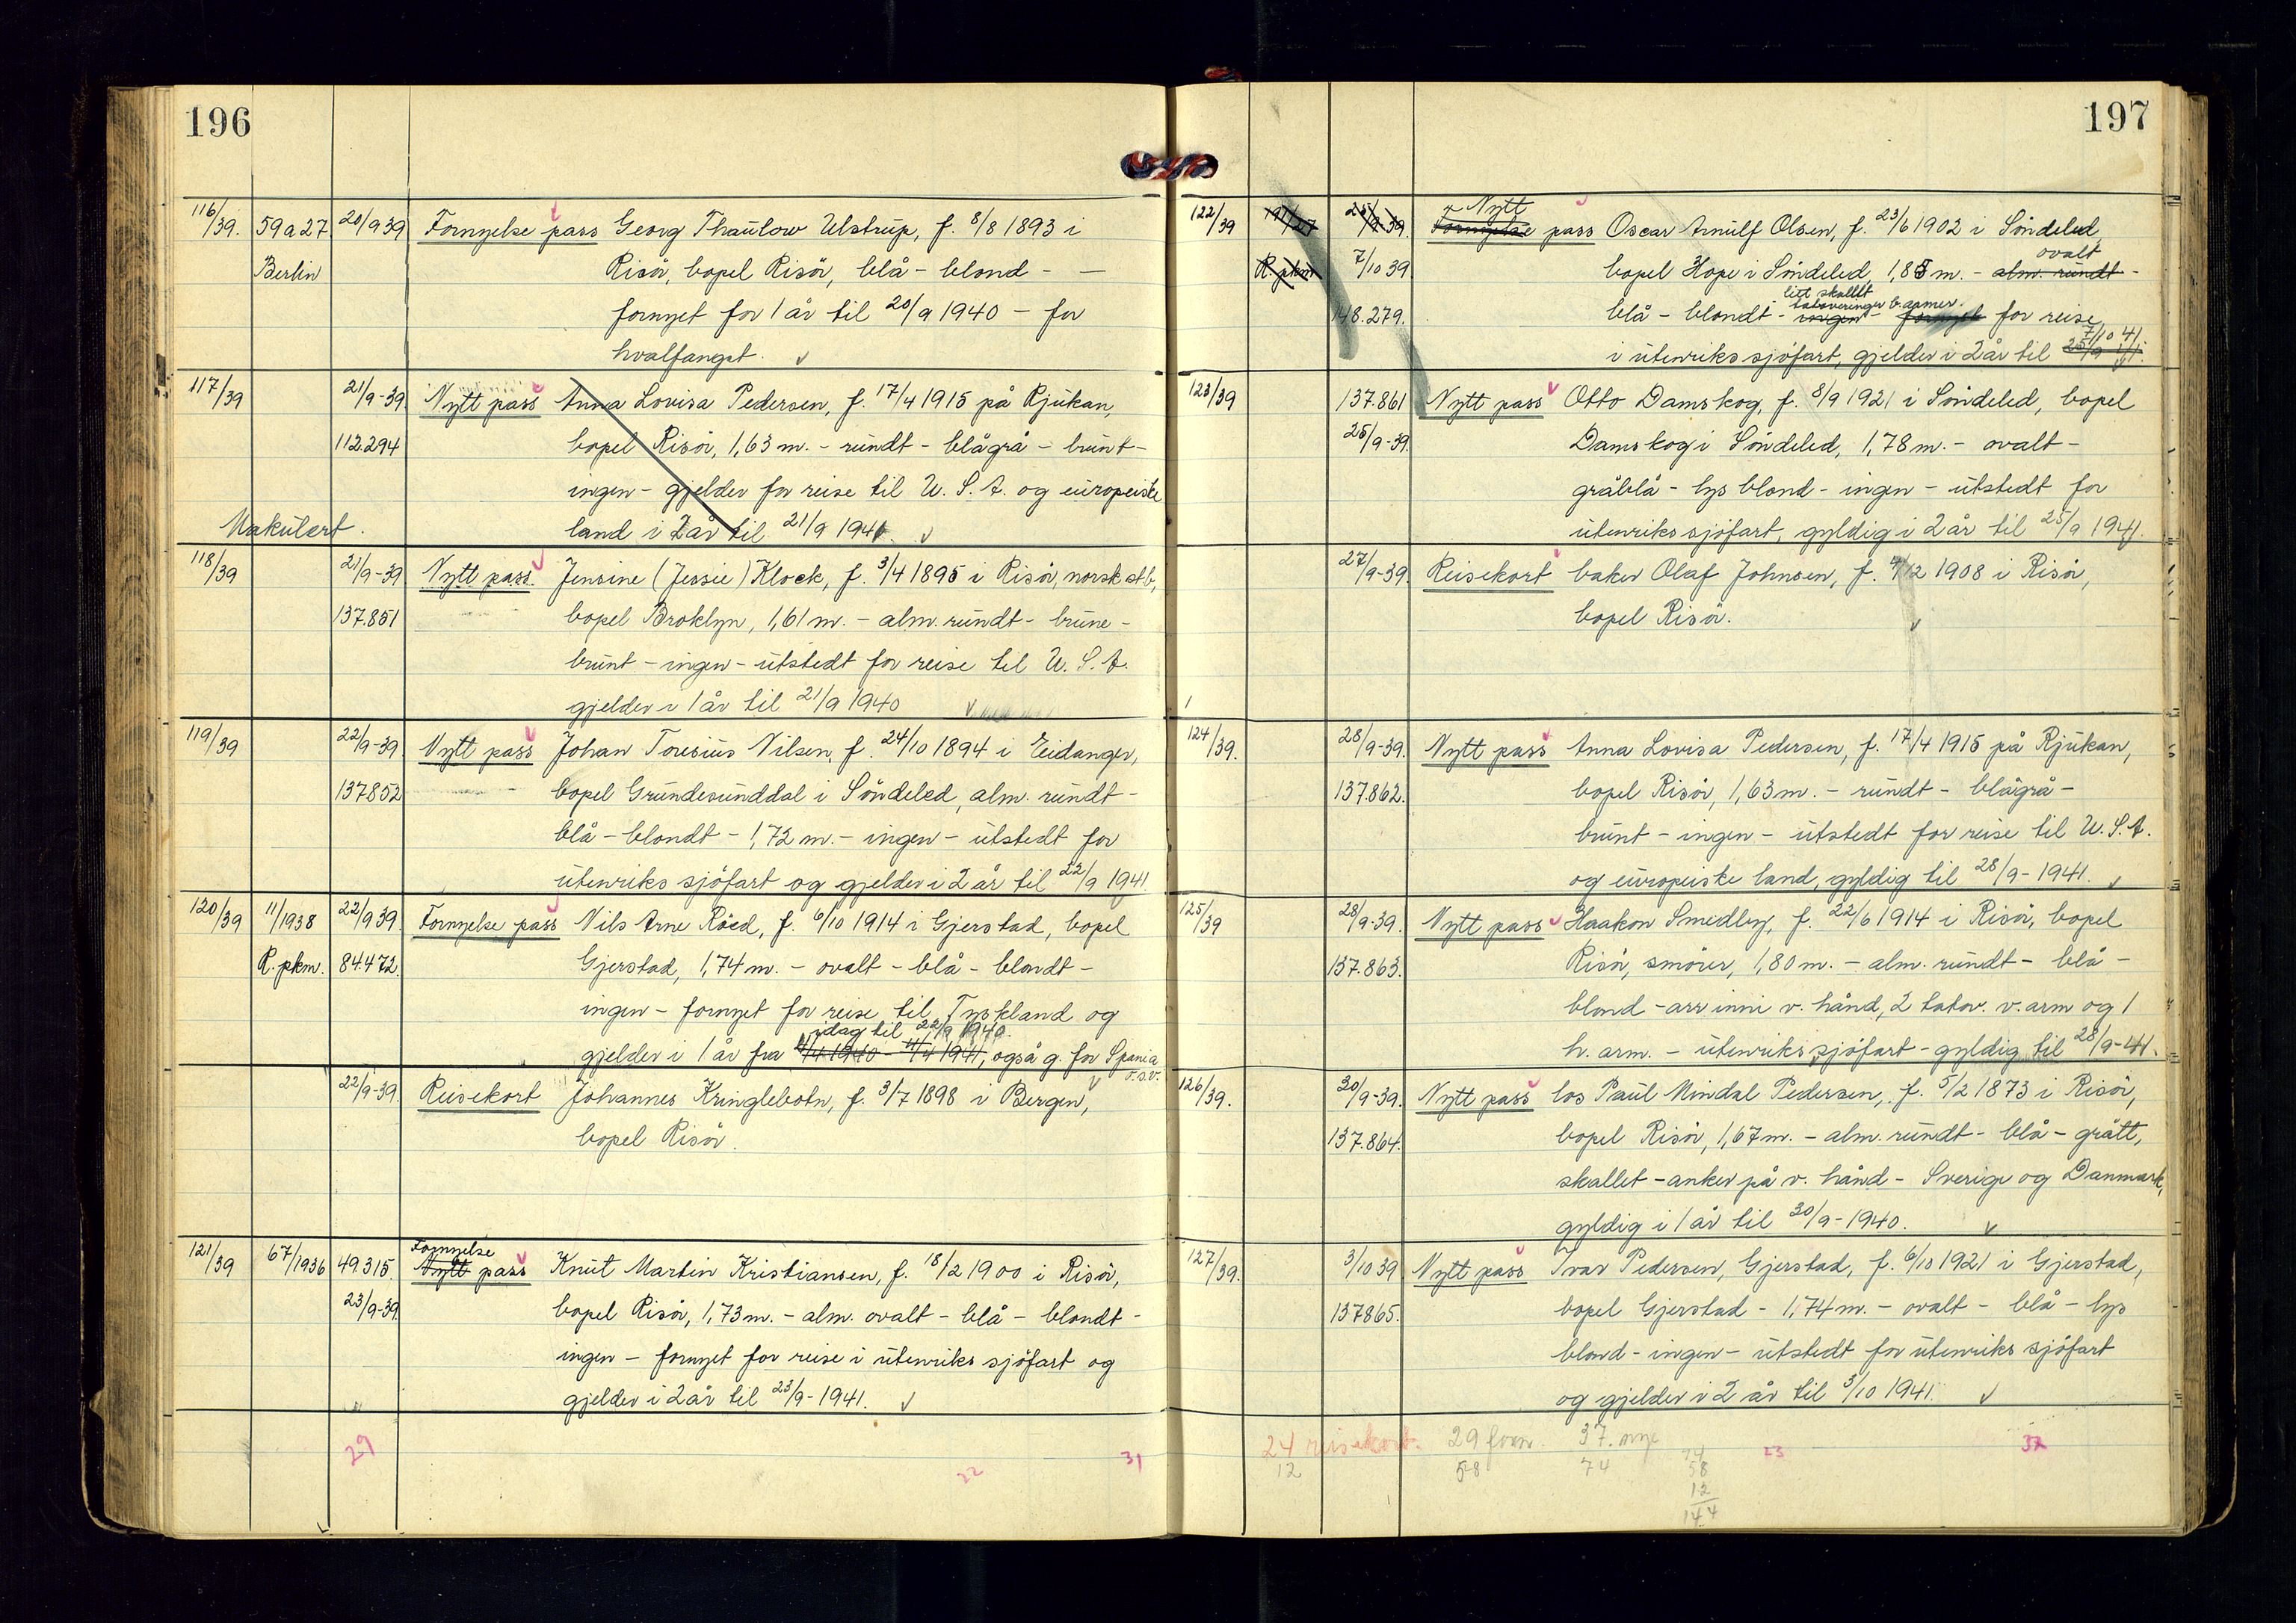 196
116/39. 59a27 20/9 39 Fornyelse pass Georg Thaulow Ulstrup, f. 8/8 1893 i
Berlin Risör, bopel Risör, blå - blond - —
fornyet for 1 år til 20/9 1940 - for
hvalfangst.
117/39 21/9-39 Nytt pass Anna Lovisa Pedersen, f. 17/4 1915 på Rjukan,
112.294 bopel Risör, 1,63 m. - rundt - blågrå - brunt -
ingen - gjelder for reise til U. S. A. og europeiske
Makulert. land i 2 år til 21/9 1941.
118/39 21/9-39 Nytt pass. Jensine (Jessie) Klock, f. 3/4 1895 i Risör, norsk stb,
137.851 bopel Broklyn, 1,61 m. - alm. rundt - brune -
brunt - ingen - utstedt for reise til U. S. A.
gjelder i 1 år til 21/9 1940
119/39 22/9-39 Nytt pass Johan Toresius Nilsen, f. 24/10 1894 i Eidanger,
137852 bopel Grundesunddal i Söndeled, alm. rundt -
blå - blondt - 1,72 m. - ingen - utstedt for
utenriks sjöfart og gjelder i 2 år til 22/9 1941
120/39 11/1938 22/9 39. Fornyelse pass Nils Arne Röed, f. 6/10 1914 i Gjerstad, bopel
R. pkm. 84.472. Gjerstad, 1,74 m. - ovalt - blå - blondt -
ingen - fornyet for reise til Tyskland og
idag til 22/9 1940.
gjelder i 1 år fra 4/4 1940 - 4/4 1941, også g. for Spania
o.s.v.
22/9-39. Reisekort Johannes Kringlebotn, f. 3/7 1898 i Bergen,
bopel Risör.
Fornyelse
121/39 67/1936 49.315. Nytt pass Knut Martin Kristiansen, f. 18/2 1900 i Risör,
23/9-39. bopel Risör, 1,73 m. - alm. ovalt - blå - blondt -
ingen - fornyet for reise i utenriks sjöfart og
gjelder i 2 år til 23/9-1941.
29 22 31
197
Nytt
122/39 25/9-39. Fornyelse pass Oscar Arnulf Olsen, f. 23/6 1902 i Söndeled
ovalt
R. pkm 7/10 39 bopel Hope i Söndeled, 1,85 m. - alm. rundt -
litt skallet
tatoveringer b. armer.
148.279. blå - blondt - ingen - fornyet for reise
7/10 41.
i utenriks sjöfart, gjelder i 2 år til 25/9 41.
123/39 137.861 Nytt pass Otto Damskog, f. 8/9 1921 i Söndeled, bopel
25/9-39. Damskog i Söndeled, 1,78 m. - ovalt -
gråblå - lys blond - ingen - utstedt for
utenriks sjöfart, gyldig i 2 år til 25/9 1941.
27/9-39. Reisekort baker Olaf Johnsen, f. 4/12 1908 i Risör,
bopel Risör.
124/39. 28/9-39. Nytt pass Anna Lovisa Pedersen, f. 17/4 1915 på Rjukan,
137.862. bopel Risör, 1,63 m. - rundt - blågrå -
brunt - ingen - utstedt for reise til U. S. A.
og europeiske land, gyldig til 28/9-1941.
125/39 28/9-39. Nytt pass Haakon Smedby, f. 22/6 1914 i Risör, bopel
137.863. Risör, smörer, 1,80 m. - alm. rundt - blå -
blond - arr inni v. hånd, 2 tatov. v. arm og 1
h. arm. - utenriks sjöfart - gyldig til 28/9-41.
126/39. 30/9-39. Nytt pass los Paul Mindal Pedersen, f. 5/2 1873 i Risör,
137.864. bopel Risör, 1,67 m. - alm. rundt - blå - grått,
skallet - anker på v. hånd - Sverige og Danmark,
gyldig i 1 år til 30/9-1940.
127/39. 3/10 39 Nytt pass Ivar Pedersen, Gjerstad, f. 6/10 1921 i Gjerstad,
137865. bopel Gjerstad - 1,74 m. - ovalt - blå - lys
blond - ingen - utstedt for utenriks sjöfart
og gjelder i 2 år til 3/10 1941.
24 reisekort. 29 forn. 37. nye
12 58 74 74 23 32
58
12
144